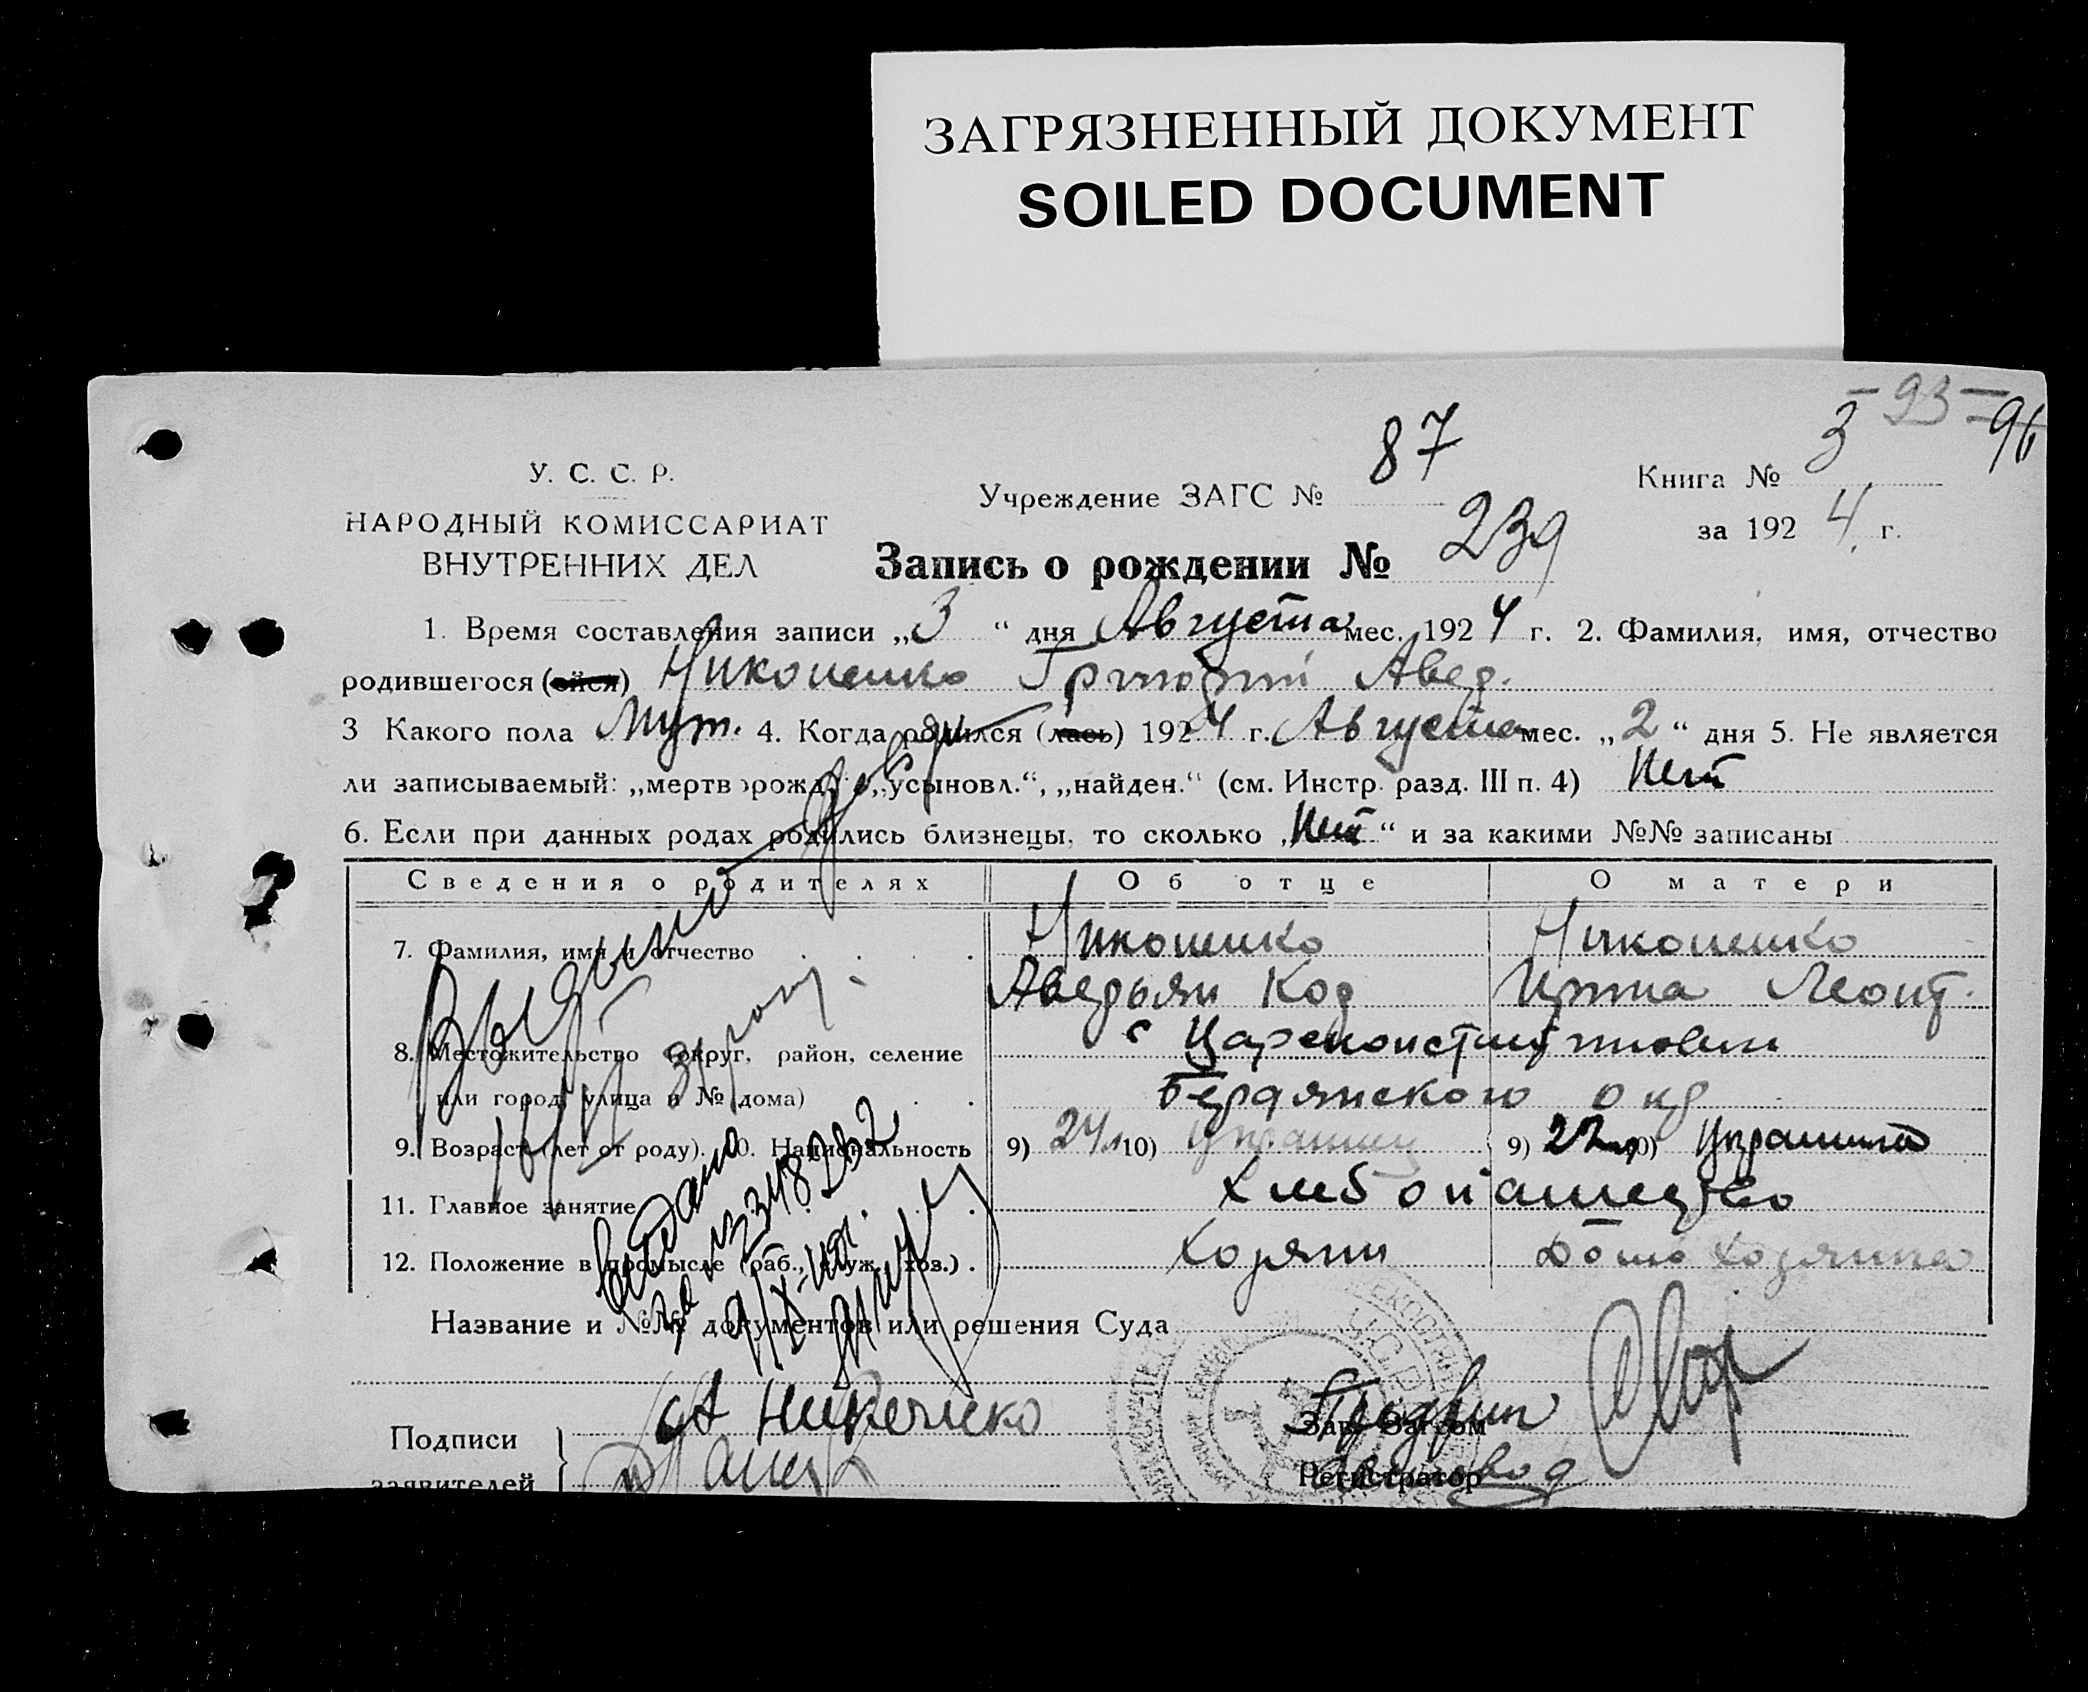 ЗАГРЯЗНЕННЫЙ ДОКУМЕНТ
SOILED DOCUMENT
- 93 -
96
У. С. С. Р.
НАРОДНЫЙ КОМИССАРИАТ
ВНУТРЕННИХ ДЕЛ
Учреждение ЗАГС № 87
Книга № 3
за 1924 г.
Запись о рождении № 239
1. Время составления записи „3“ дня Августа мес. 1924 г. 2. Фамилия, имя, отчество
родившегося (ейся) Никоненко Григорий Авер.
3 Какого пола Муж. 4. Когда родился (лась) 1924 г. Августа мес. „2“ дня 5. Не является
ли записываемый: „мертворожд.“, „усыновл.“, „найден.“ (см. Инстр. разд. III п. 4) Нет
6. Если при данных родах родились близнецы, то сколько „Нет“ и за какими №№ записаны
Сведения о родителях Об отце О матери
7. Фамилия, имя и отчество Никоненко Никоненко
Аверьян Кор Ирина Леонт.
8. Местожительство (округ, район, селение с Цареконстантиновки
или город, улица и № дома) Бердянского окр
9. Возраст (лет от роду). 10. Национальность 9) 24 л 10) украинец 9) 22 л 10) Украинка
11. Главное занятие Хлебопашество
12. Положение в промысле (раб., служ., хоз.) Хозяин Домохозяйка
Название и №№ документов или решения Суда
Подписи
заявителей
Зав. Загсом
Регистратор
Выдано